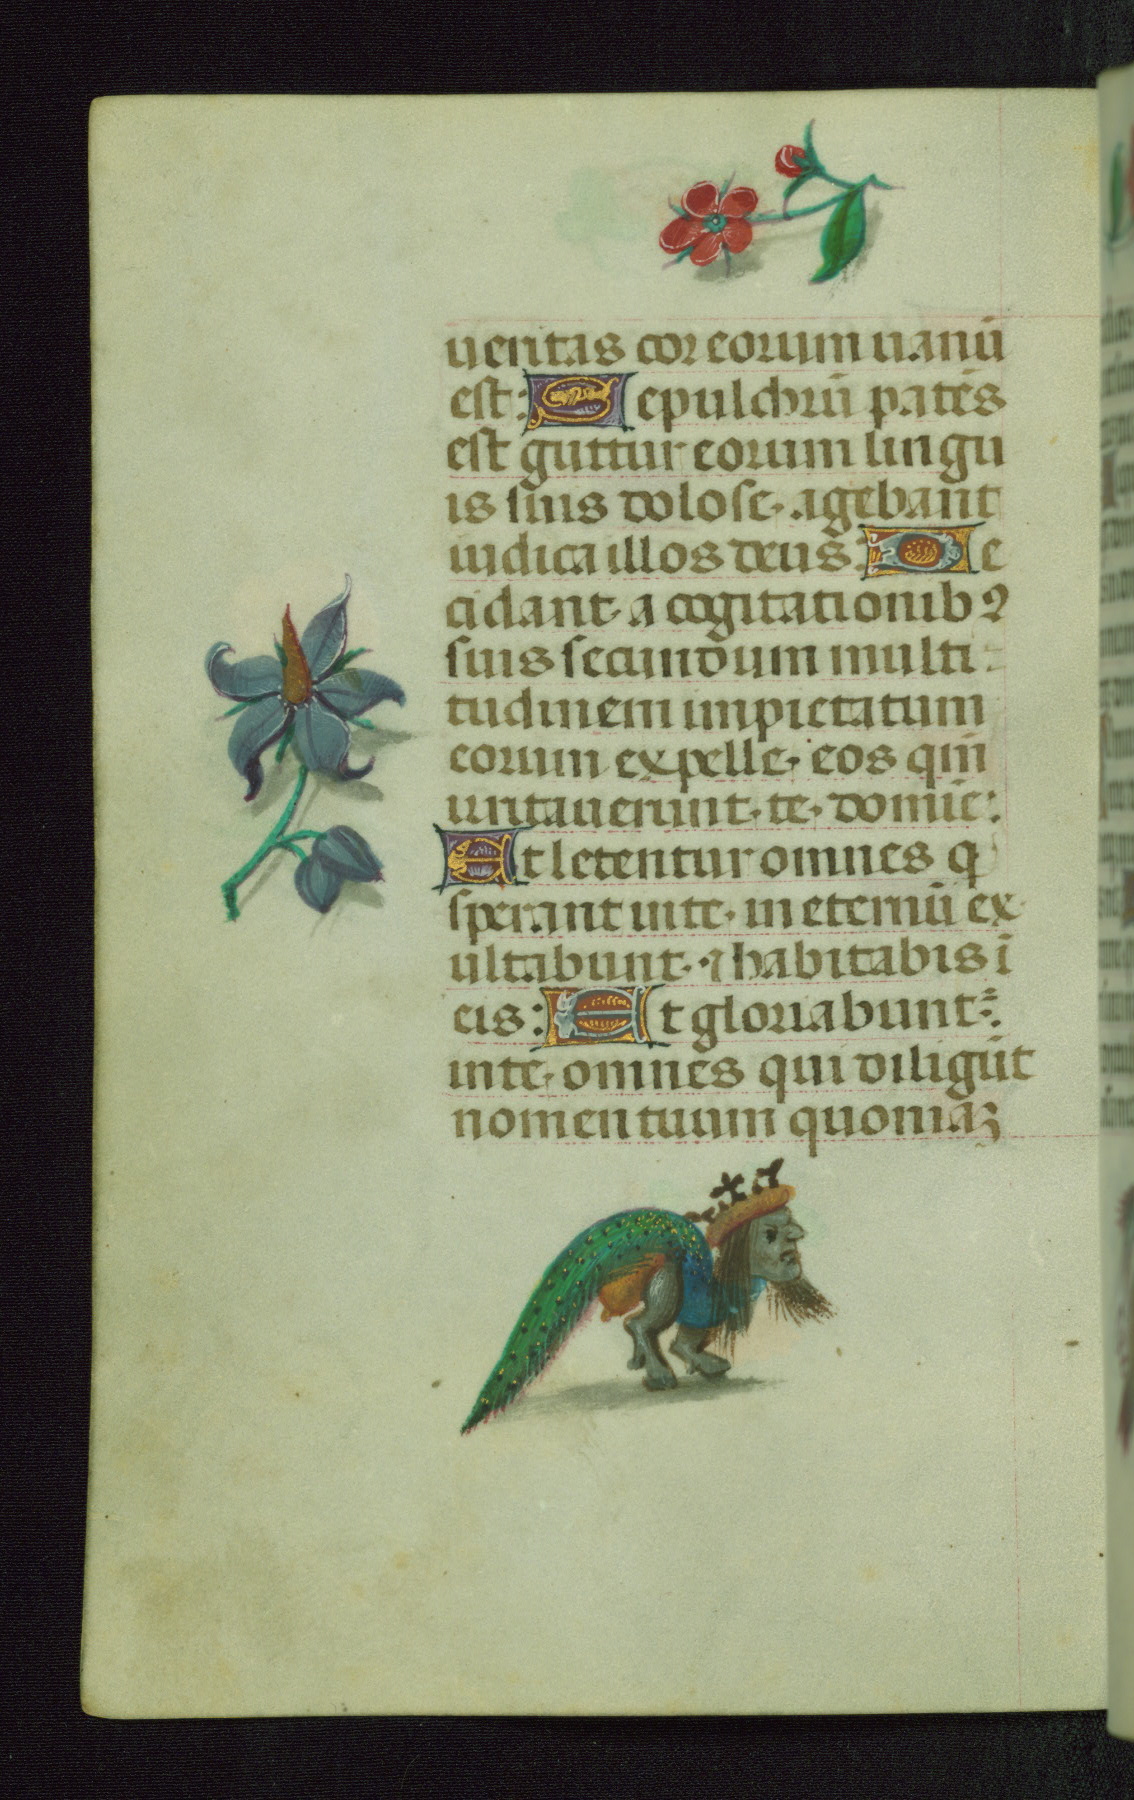 ueritas cor eorum uanū
est: Sepulchrū patēs
est guttur eorum lingu
is suis dolose· agebant
iudica illos deus: De
cidant· a cogitationibꝰ
suis secundum multi-
tudinem impietatum
eorum expelle· eos qm̄
irritauerunt· te· domīe:
Et letentur omnes q̇
sperant inte· in eternū ex
ultabunt· ⁊ habitabis ī
eis: Et gloriabunt᷑:
inte· omnes qui diligūt
nomen tuum quoniaꝫ